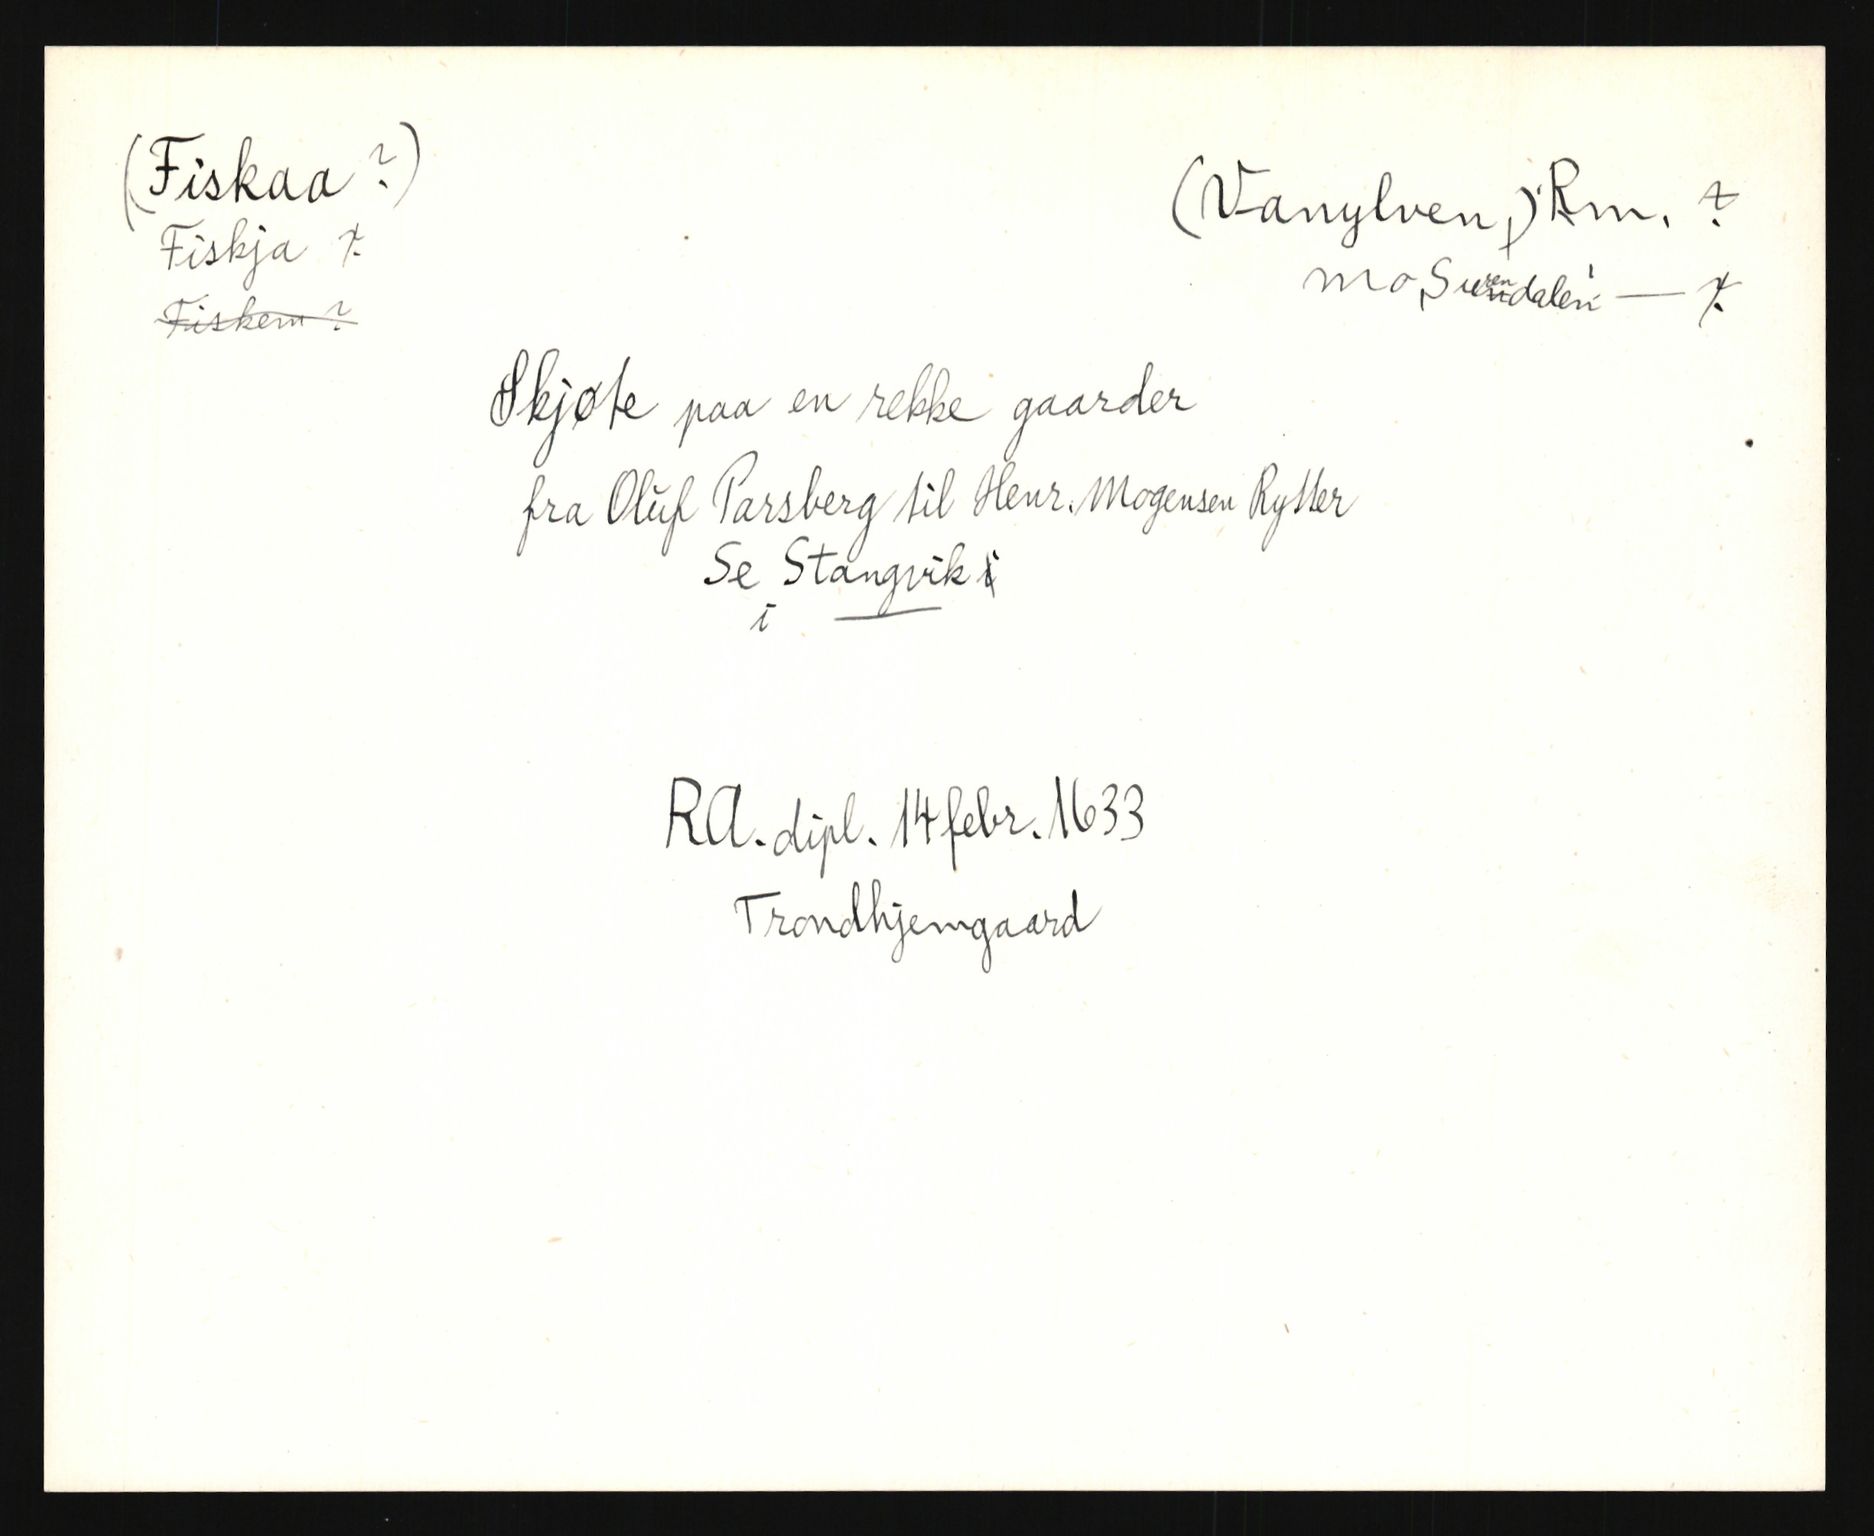 (Fiskaa ?)
Fiskja ?
Fiskem ?
(Vanylven,) Rm. ?
Mo, Surendalen — ?
Skjøte paa en rekke gaarder
fra Oluf Parsberg til Henr. Mogensen Rytter
Se Stangvik
i
RA. dipl. 14 febr. 1633
Trondhjemgaard